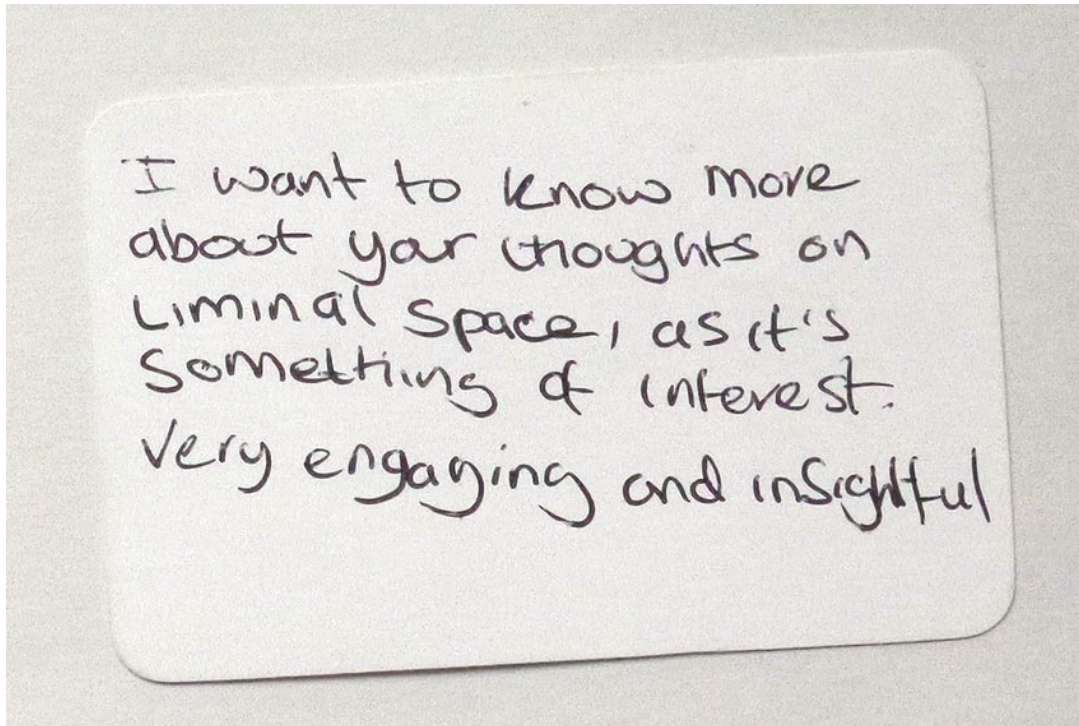 I want to know more
about your thoughts on
Liminal Space, as it's
Something of interest.
Very engaging and insightful